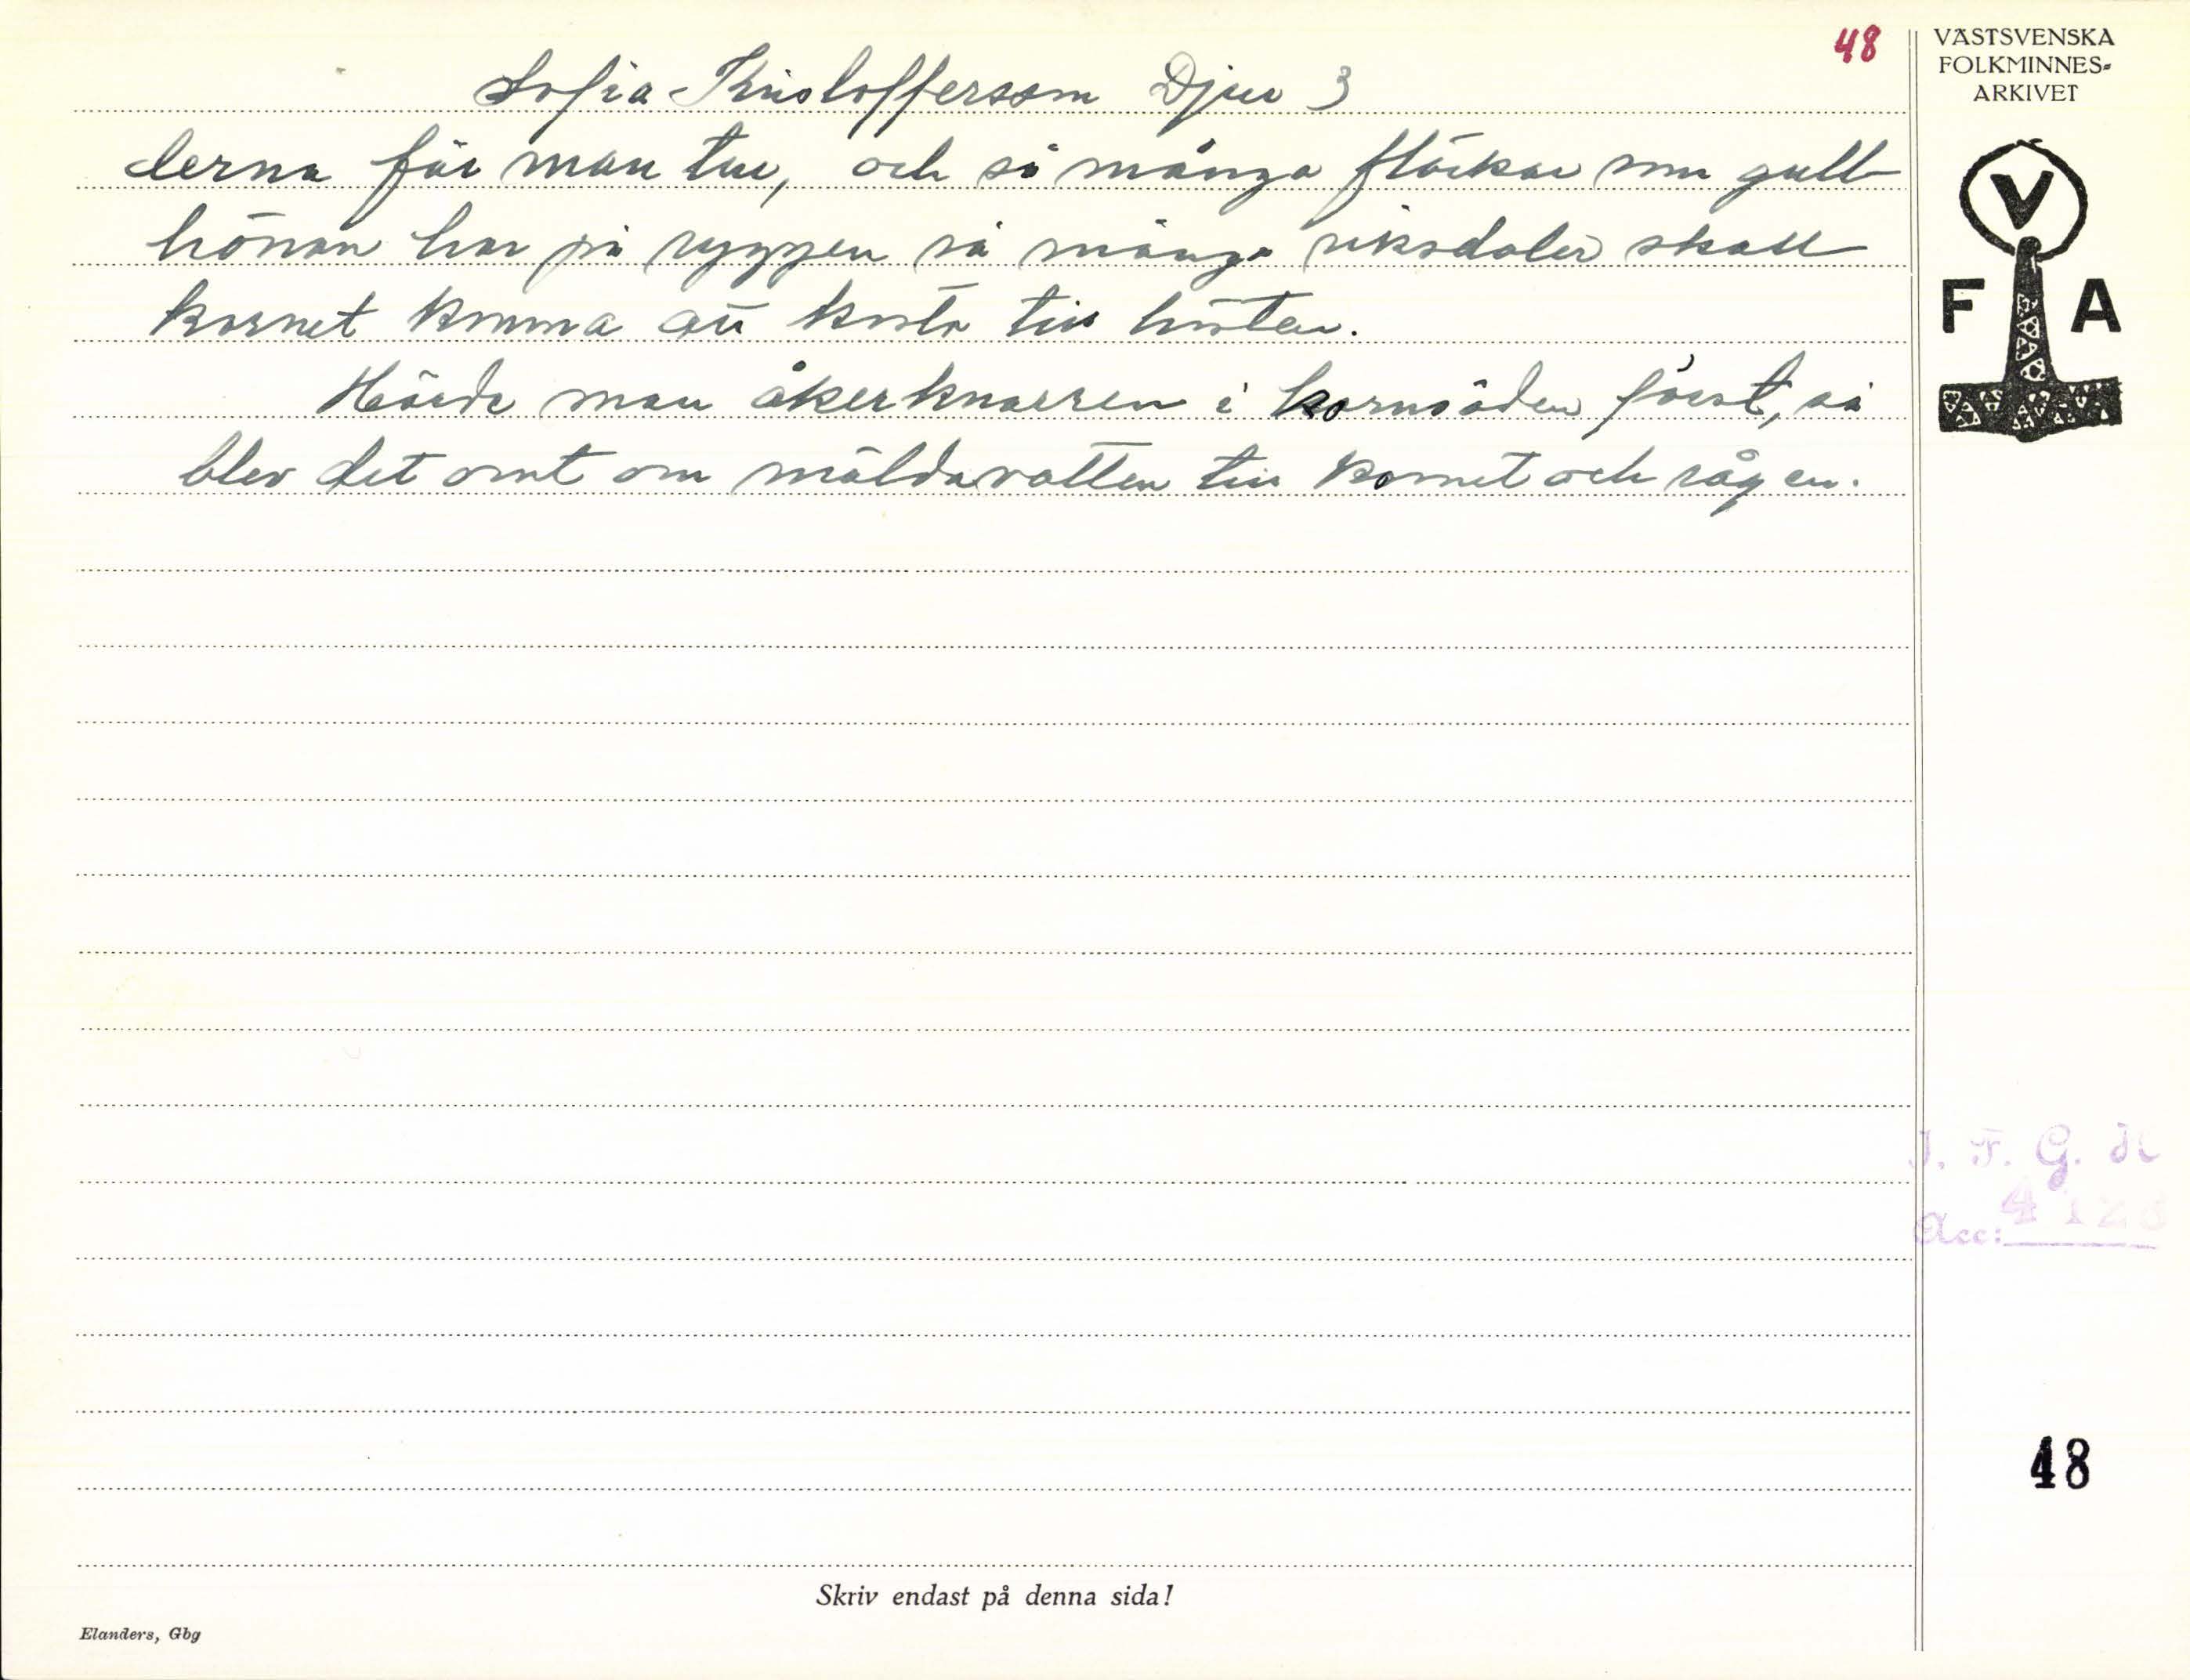 48
Sofia Kristoffersson Djur 3
derna får man tur, och så många fläckar som gull-
hönan har på ryggen så många riksdaler skall
kornet komma att kosta till hösten.
Hörde man åkerknarren i kornsäden först, så
blev det ont om mäldavatten till kornet och rågen.
Skriv endast på denna sida!
Elanders, Gbg
VÄSTSVENSKA
FOLKMINNES-
ARKIVET
V
F A
I. F. G. H
Acc: 4128
48